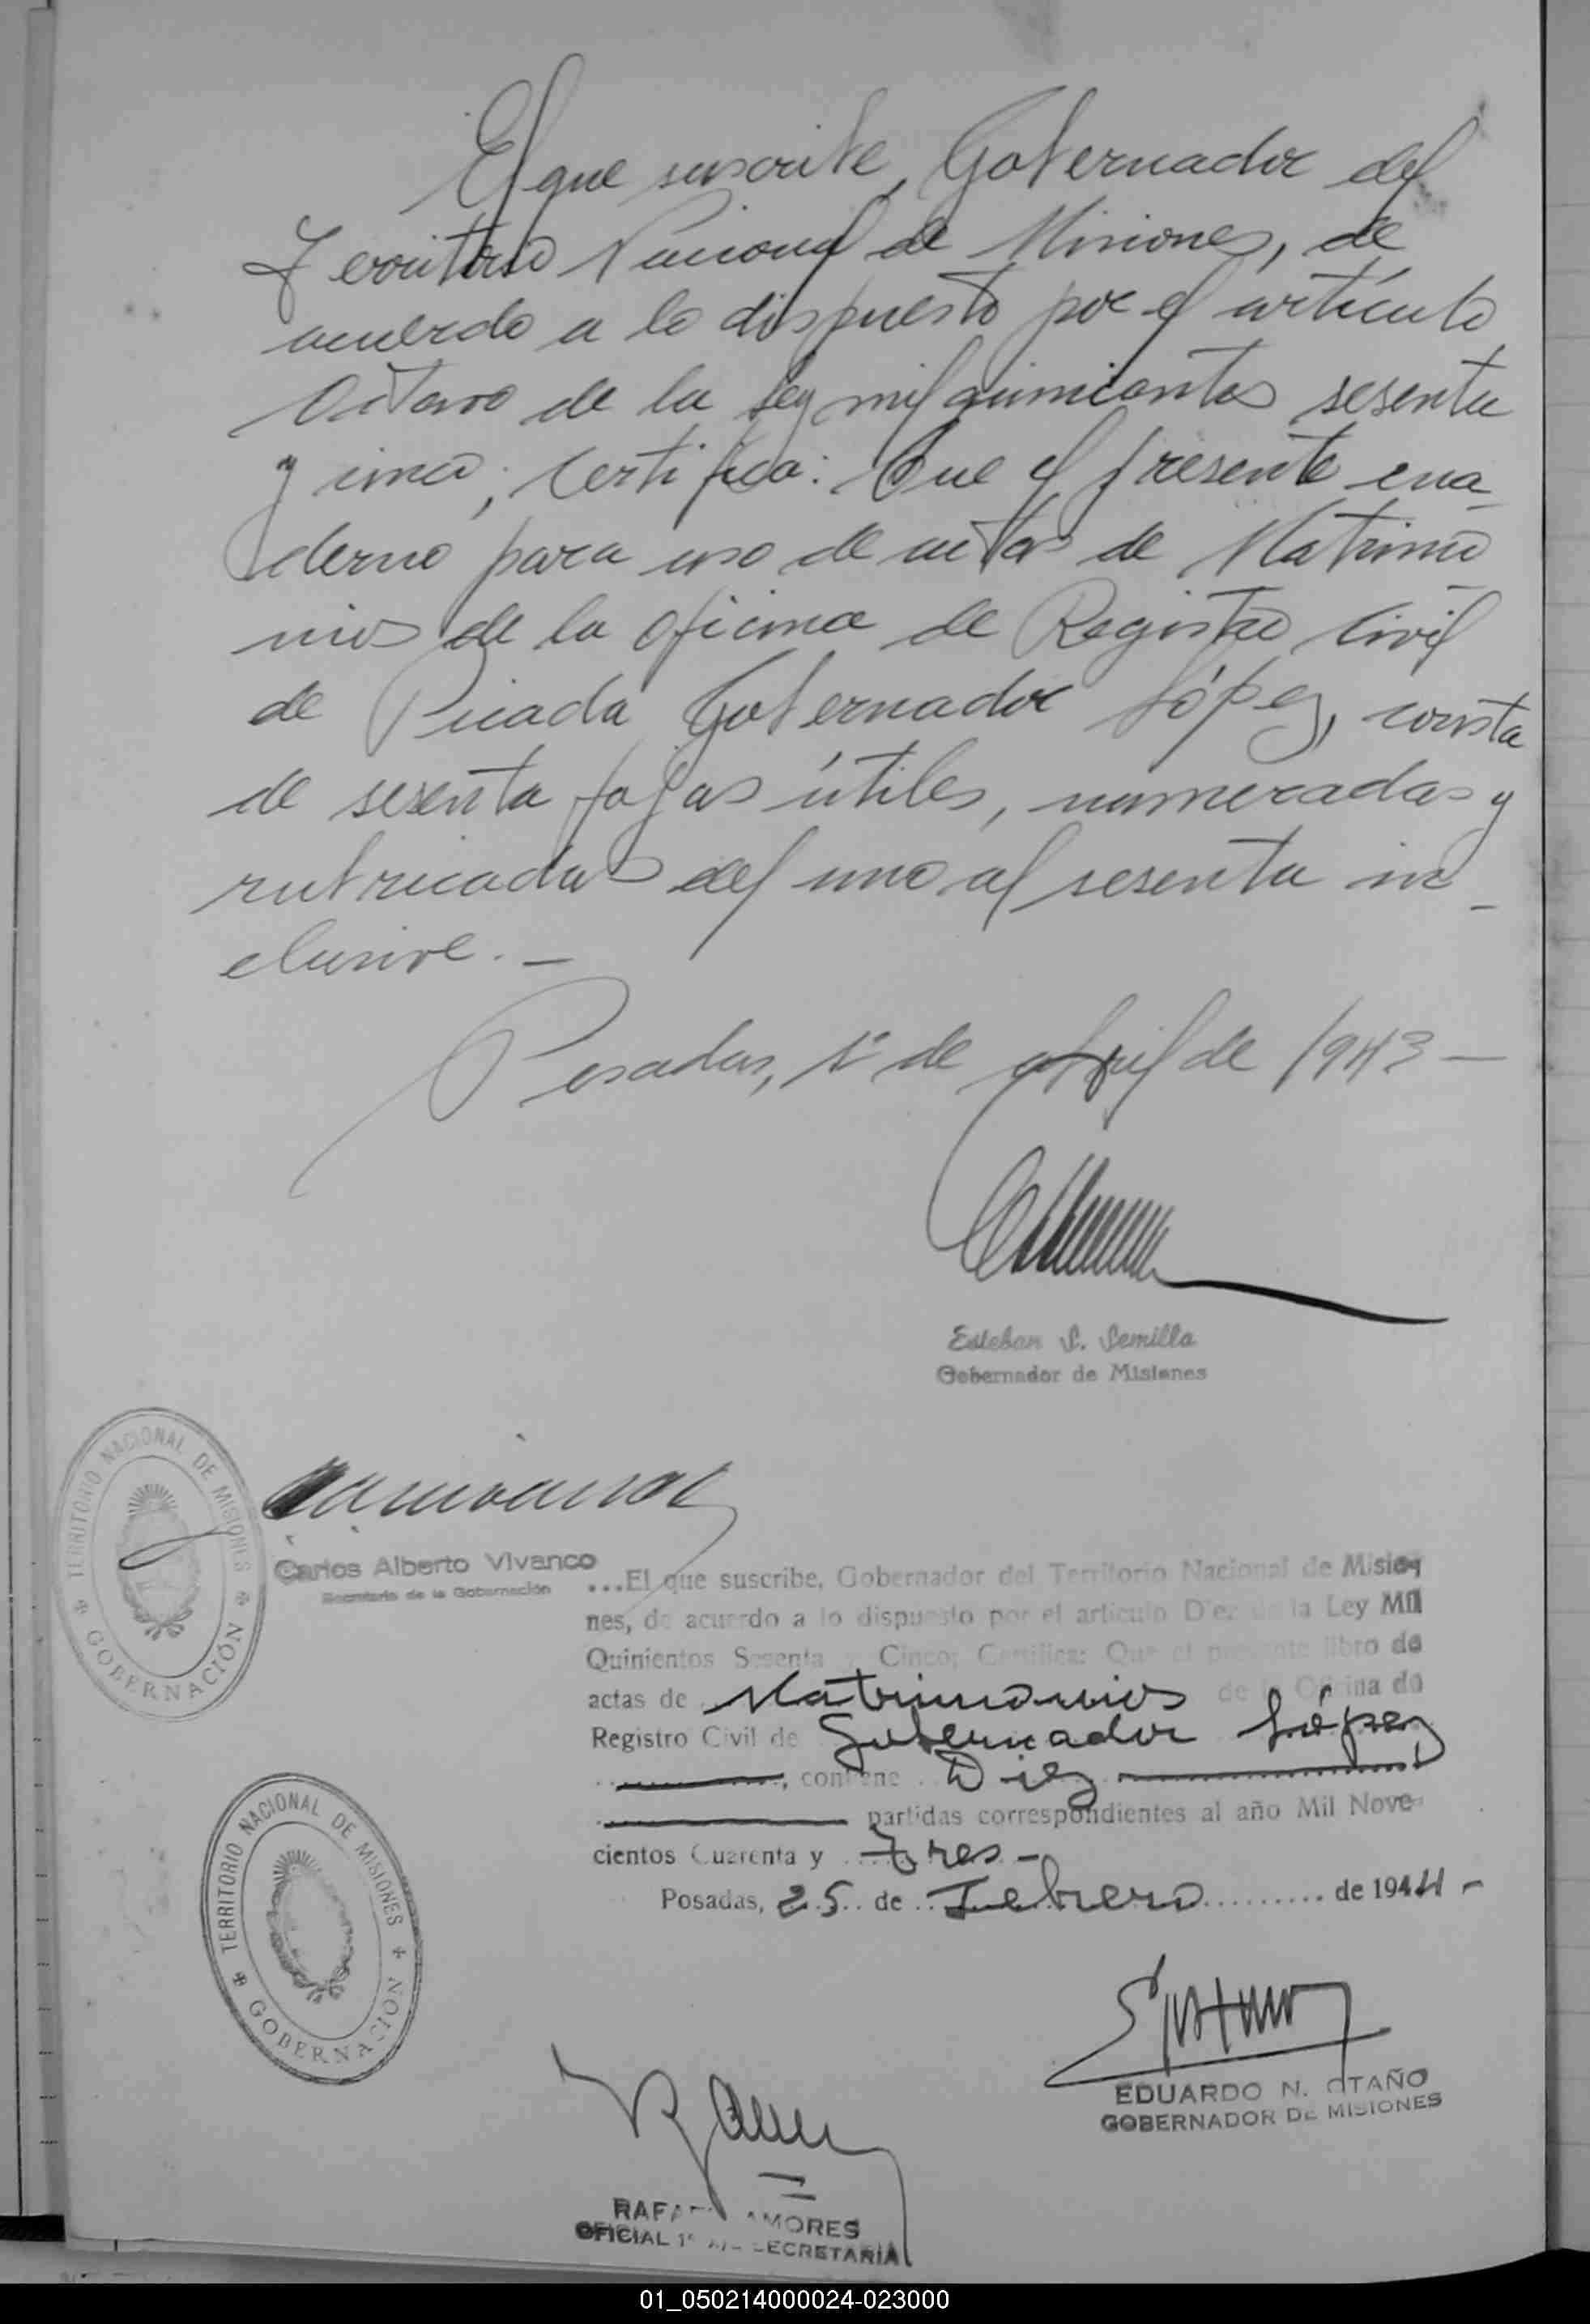 El que suscribe, Gobernador del
Territorio Nacional de Misiones, de
acuerdo a lo dispuesto por el artículo
Octavo de la Ley mil quinientos sesenta
y cinco; Certifica: Que el presente cua_
derno para uso de actas de Matrimo_
nios de la oficina de Registro Civil
de Picada Gobernador López, consta
de sesenta fojas útiles, numeradas y
rubricadas del uno al sesenta in_
clusive. _
Posadas, 1º de abril de 1943 —
Esteban S. Semilla
Gobernador de Misiones
TERRITORIO NACIONAL DE MISIONES
GOBERNACIÓN
Carlos Alberto Vivanco
Secretario de la Gobernación
...El que suscribe, Gobernador del Territorio Nacional de Misio-
nes, de acuerdo a lo dispuesto por el artículo Diez de la Ley Mil
Quinientos Sesenta y Cinco; Certifica: Que el presente libro de
actas de Matrimonios de la Oficina de
Registro Civil de Gobernador López
, contiene Diez
partidas correspondientes al año Mil Nove-
cientos Cuarenta y Tres -
Posadas, 25 de Febrero de 1944 -
TERRITORIO NACIONAL DE MISIONES
GOBERNACION
EDUARDO N. OTAÑO
GOBERNADOR DE MISIONES
RAFAEL AMORES
OFICIAL 1º SECRETARIA
01_050214000024-023000